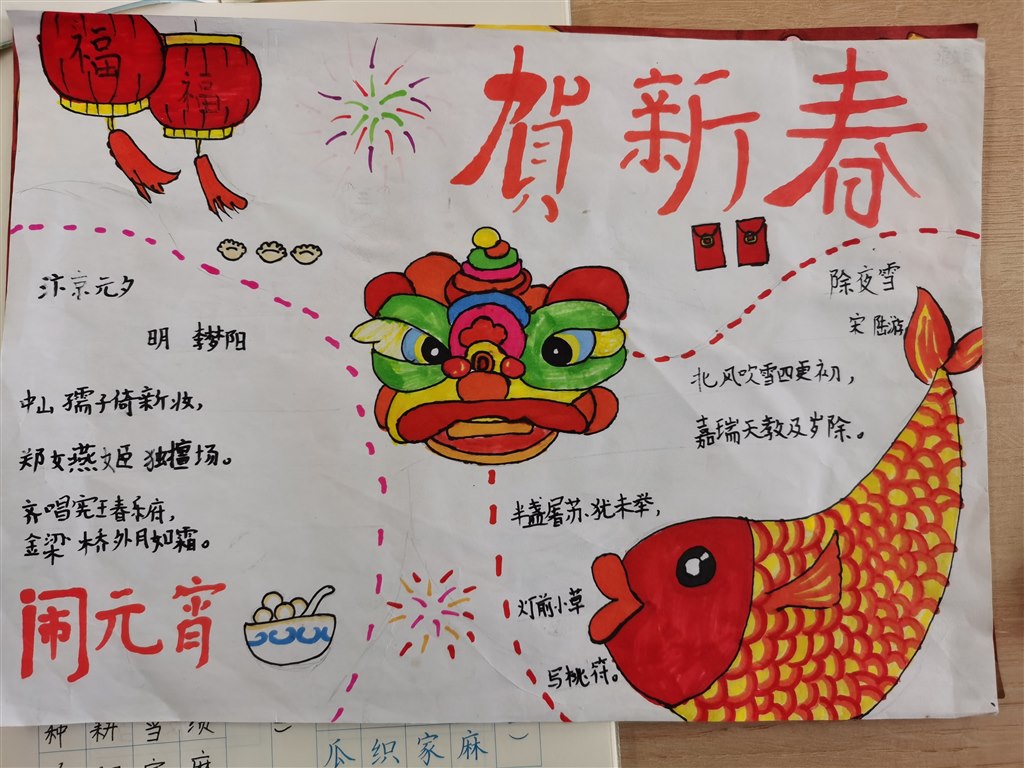 福
福
賀新春
汴京元夕
明 李梦阳
中山孺子倚新妆，
郑女燕姬独擅场。
齐唱宪王春乐府，
金梁桥外月如霜。
闹元宵
除夜雪
宋 陆游
北风吹雪四更初，
嘉瑞天教及岁除。
半盏屠苏犹未举，
灯前小草
写桃符。
种 耕 当 须 ）
瓜 织 家 麻 ）